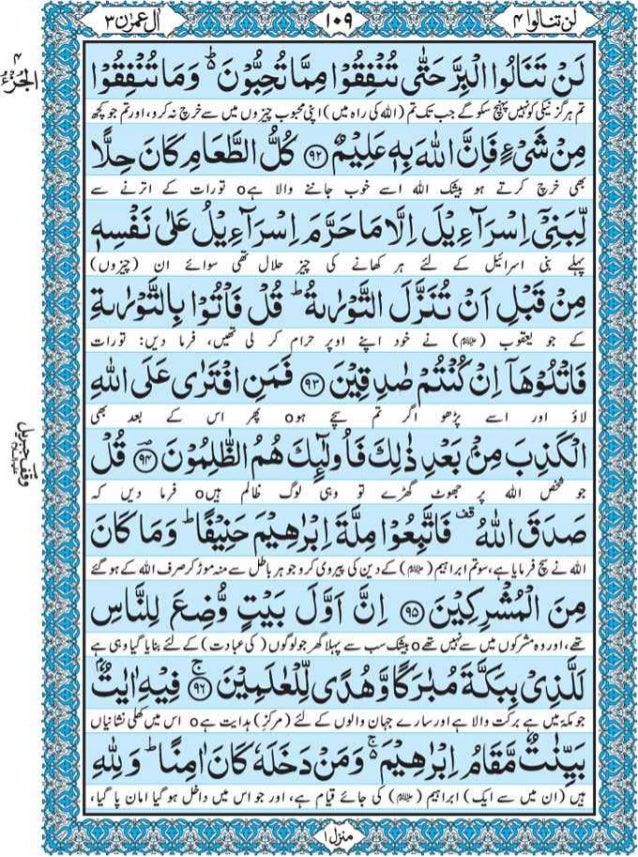 لن تنالوا ۴
۱۰۹
اٰل عمرٰن ۳
۴
الجزء
لَنْ تَنَالُوا الْبِرَّ حَتّٰى تُنْفِقُوْا مِمَّا تُحِبُّوْنَ ؕ وَمَا تُنْفِقُوْا
تم ہرگز نیکی کو نہیں پہنچ سکو گے جب تک تم (اللہ کی راہ میں) اپنی محبوب چیزوں میں سے خرچ نہ کرو، اور تم جو کچھ
مِنْ شَیْءٍ فَاِنَّ اللّٰهَ بِهٖ عَلِیْمٌ ﴿۹۲﴾ كُلُّ الطَّعَامِ كَانَ حِلًّا
بھی خرچ کرتے ہو بیشک اللہ اسے خوب جاننے والا ہے o تورات کے اترنے سے
لِّبَنِیْۤ اِسْرَآءِیْلَ اِلَّا مَا حَرَّمَ اِسْرَآءِیْلُ عَلٰى نَفْسِهٖ
پہلے بنی اسرائیل کے لئے ہر کھانے کی چیز حلال تھی سوائے ان (چیزوں)
مِنْ قَبْلِ اَنْ تُنَزَّلَ التَّوْرٰىةُ ؕ قُلْ فَاْتُوْا بِالتَّوْرٰىةِ
کے جو یعقوب (علیہ السلام) نے خود اپنے اوپر حرام کر لی تھیں، فرما دیں: تورات
فَاتْلُوْهَاۤ اِنْ كُنْتُمْ صٰدِقِیْنَ ﴿۹۳﴾ فَمَنِ افْتَرٰى عَلَى اللّٰهِ
لاؤ اور اسے پڑھو اگر تم سچے ہو o پھر اس کے بعد بھی
الْكَذِبَ مِنْۢ بَعْدِ ذٰلِكَ فَاُولٰٓىِٕكَ هُمُ الظّٰلِمُوْنَ ﴿۹۴﴾ قُلْ
جو شخص اللہ پر جھوٹ گھڑے تو وہی لوگ ظالم ہیں o فرما دیں کہ
وقف جبریل
صَدَقَ اللّٰهُ ۫ فَاتَّبِعُوْا مِلَّةَ اِبْرٰهِیْمَ حَنِیْفًا ؕ وَمَا كَانَ
اللہ نے سچ فرمایا ہے، سو تم ابراہیم (علیہ السلام) کے دین کی پیروی کرو جو ہر باطل سے منہ موڑ کر صرف اللہ کے ہو گئے
مِنَ الْمُشْرِكِیْنَ ﴿۹۵﴾ اِنَّ اَوَّلَ بَیْتٍ وُّضِعَ لِلنَّاسِ
تھے، اور وہ مشرکوں میں سے نہیں تھے o بیشک سب سے پہلا گھر جو لوگوں (کی عبادت) کے لئے بنایا گیا وہی ہے
لَلَّذِیْ بِبَكَّةَ مُبٰرَكًا وَّهُدًى لِّلْعٰلَمِیْنَ ﴿۹۶﴾ۚ فِیْهِ اٰیٰتٌۢ
جو مکہ میں ہے برکت والا ہے اور سارے جہان والوں کے لئے (مرکزِ) ہدایت ہے o اس میں کھلی نشانیاں
بَیِّنٰتٌ مَّقَامُ اِبْرٰهِیْمَ ۚ۬ وَمَنْ دَخَلَهٗ كَانَ اٰمِنًا ؕ وَلِلّٰهِ
ہیں (ان میں سے ایک) ابراہیم (علیہ السلام) کی جائے قیام ہے، اور جو اس میں داخل ہو گیا امان پا گیا،
منزل ۱